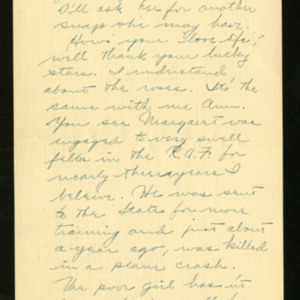 I'll ask her for another
snap she may have.
How's your "love life",
will thank your lucky
stars. I understand
about the roses. It's the
same with me Ann.
You see Margaret was
engaged to very swell
fella in the R.A.F. for
nearly three years I
believe. He was sent
to the States for more
training and just about
a year ago, was killed
in a plane crash.
The poor girl has it